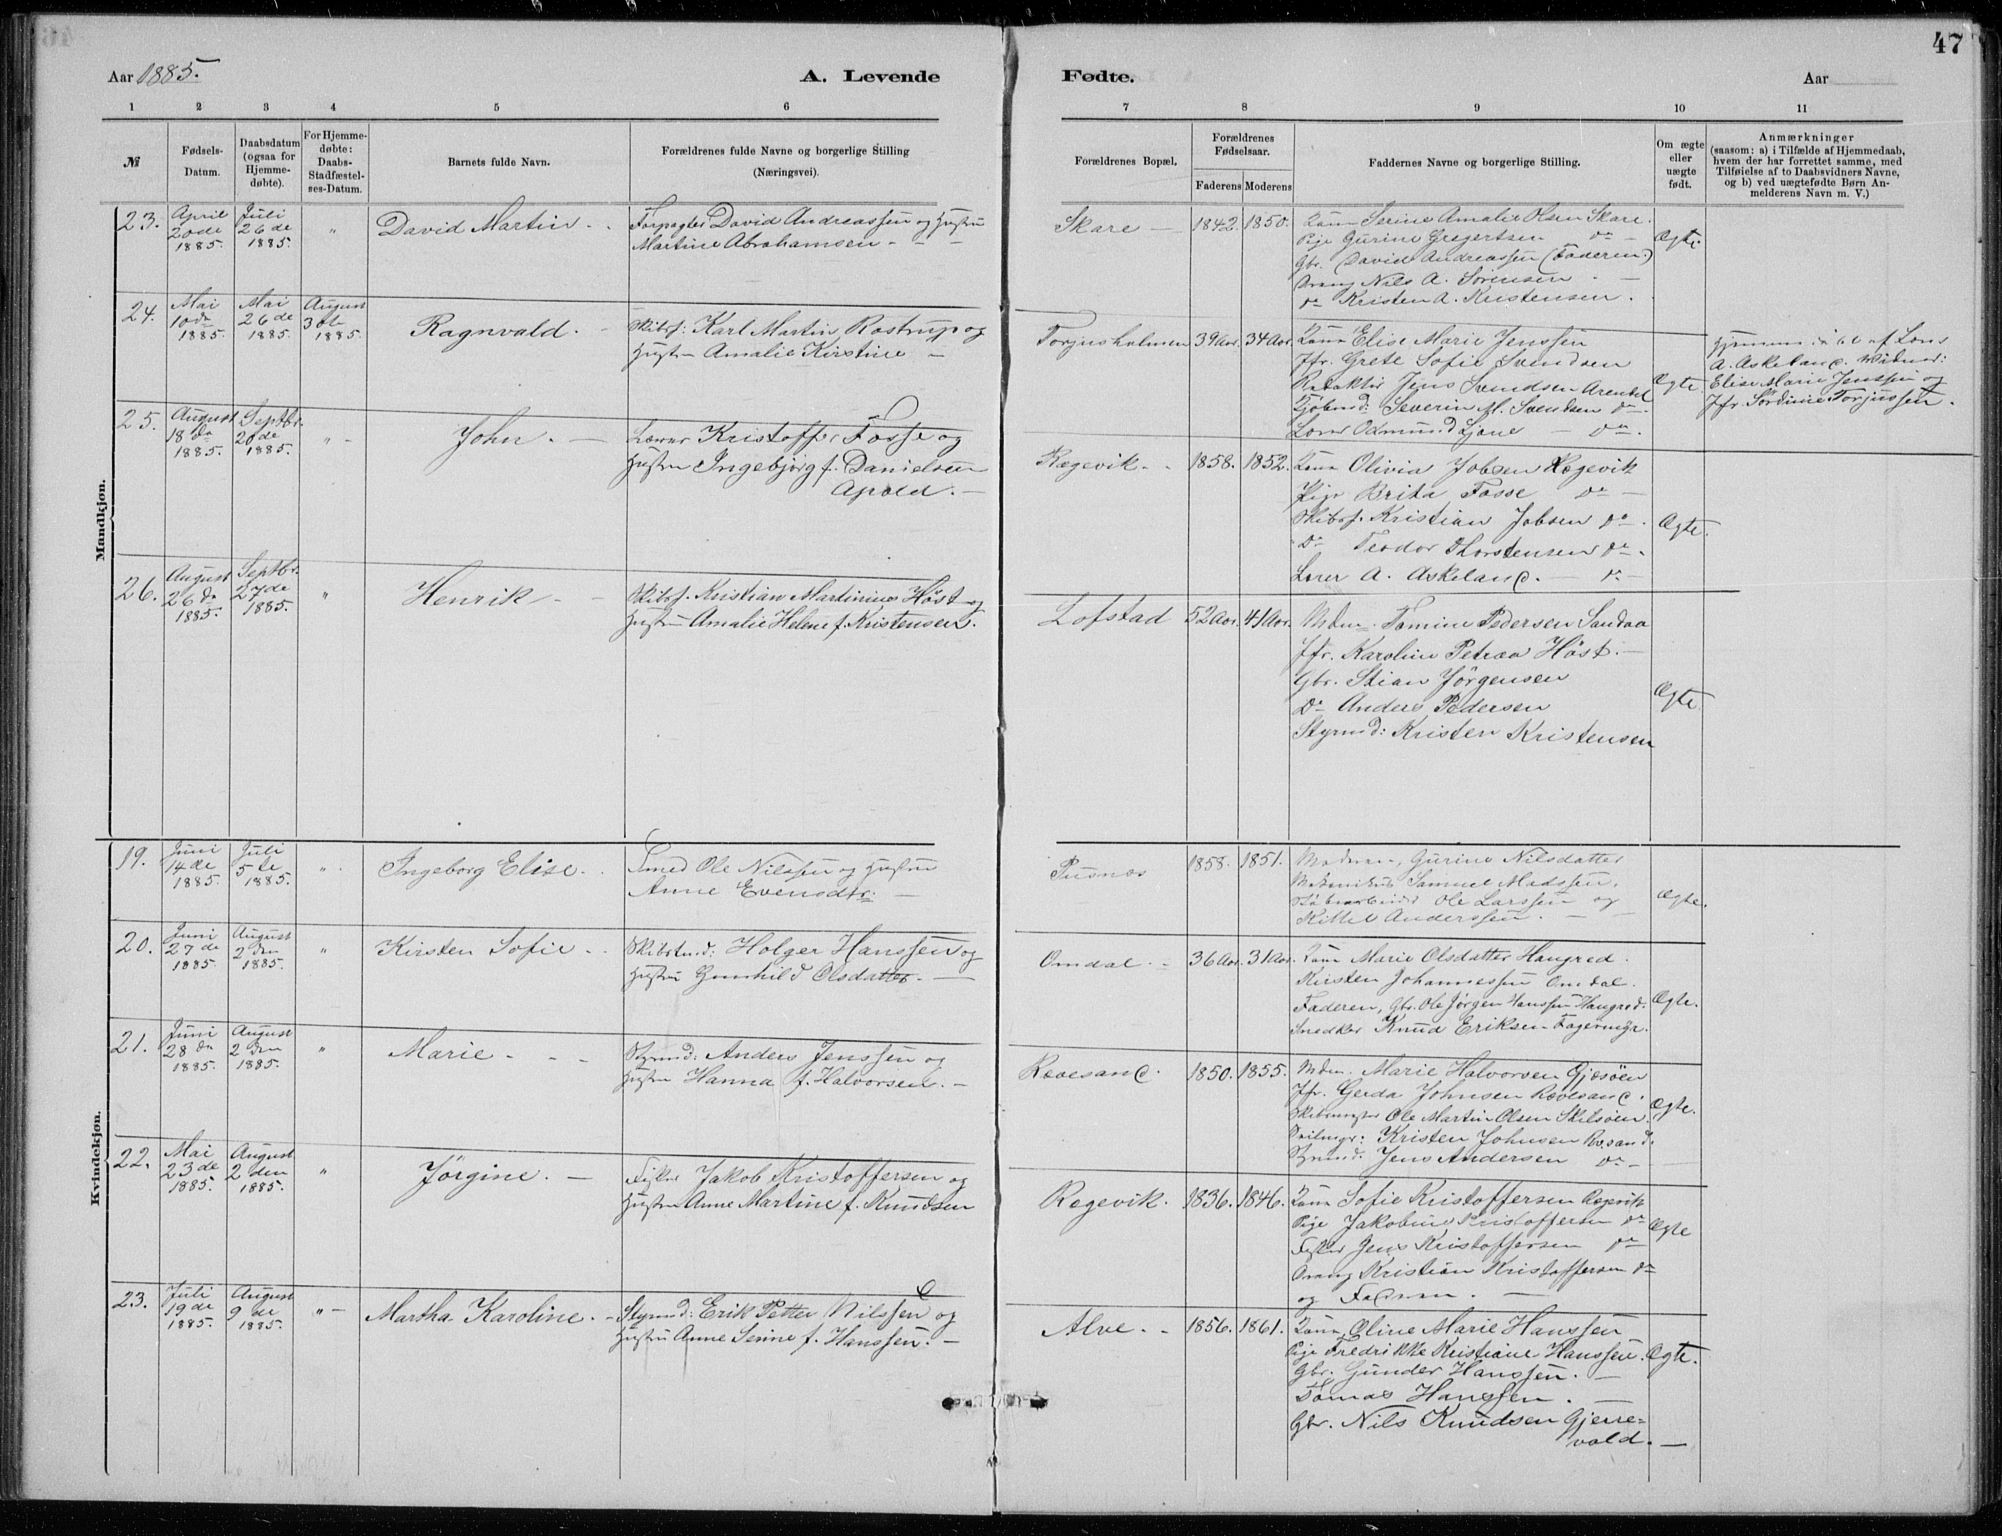 47
Aar 1885.
A. Levende
Fødte.
Aar
1 2 3 4 5 6 7 8 9 10 11
№
Fødsels-
Datum.
Daabsdatum
(ogsaa for
Hjemme-
døbte).
For Hjemme-
døbte:
Daabs-
Stadfæstel-
ses-Datum.
Barnets fulde Navn.
Forældrenes fulde Navne og borgerlige Stilling
(Næringsvei).
Forældrenes Bopæl.
Forældrenes
Fødselsaar.
Faderens
Moderens
Faddernes Navne og borgerlige Stilling.
Om ægte
eller
uægte
født.
Anmærkninger
(saasom: a) i Tilfælde af Hjemmedaab,
hvem der har forrettet samme, med
Tilføielse af to Daabsvidners Navne,
og b) ved uægtefødte Børn An-
melderens Navn m. V.)
Mandkjøn.
23.
April
20de
1885.
Juli
26de
1885.
"
David Martin
Forpagter David Andreassen og Hustru
Martine Abrahamsen
Skare
1842.
1850.
Kone Serine Amalie Olsen Skare.
Pige Gurine Gregertsen do
Gbr. David Andreassen (Faderen.)
Nils A. Sørensen
do Kristen A. Kristensen.
Ægte.
24.
Mai
10de
1885.
Mai
26de
1885.
August
30te
1885.
Ragnvald.
Skibsf: Karl Martin Rostrup og
Hustru Amalie Kirstine
Torjusholmen
39 Aar.
34 Aar.
Kone Elise Marie Jenssen
Jfr. Grete Sofie Svendsen
Redaktør Jens Svendsen Arendal
Severin M. Svendsen do
Lærer Odmund Ljone do
Ægte
A. Askeland. Vidner:
Elise Marie Jenssen og
Jfr. Sørdine Torjussen.
25.
August
18de
1885.
Septbr.
20de
1885.
"
John.
Lærer Kristoffer Fosse og
Hustru Ingebjørg f. Danielsen
Apold.
Rægevik
1858.
1852.
Kone Olivia Jobsen Rægevik
Pige Brita Fosse do
Skibsf. Kristian Jobsen do
do Teodor Thorstensen do
Lærer A. Askeland. do
Ægte.
26.
August
26de
1885.
Septbr.
27de
1885.
"
Henrik
Skibsf. Kristian Martinius Høst og
Hustru Amalie Helene f. Kristensen.
Lofstad
52 Aar.
41 Aar.
Mdm. Tomine Pedersen Sandaa
Jfr. Karoline Petrea Høst.
Gbr. Stian Jørgensen
do Anders Pedersen
Styrmd: Kristen Kristensen
Ægte.
Kvindekjøn.
19.
Juni
14de
1885.
Juli
5te
1885.
"
Ingeborg Elise.
Smed Ole Nilssen og Hustru
Anne Evensdtr.
Pusnes
1858.
1851.
Moderen, Gurine Nilsdatter
Samuel Madssen,
Ole Larssen og
Kittel Anderssen.
Ægte.
20.
Juni
27de
1885.
August
2den
1885.
"
Kirsten Sofie
Holger Hanssen og
Hustru Gunhild Olsdatter.
Omdal.
36 Aar.
31 Aar.
Kone Marie Olsdatter Haugred.
Kirsten Johannessen Omdal.
Faderen, Gbr. Ole Jørgen Hanssen Haugred.
Snedker Knud Eriksen Fagermyr.
Ægte.
21.
Juni
28de
1885.
August
2den
1885.
"
Marie
Styrmd: Anders Jenssen og
Hustru Hanna f. Halvorsen.
Rævesand.
1850.
1855.
Mdm. Marie Halvorsen Gjæsøen
Jfr. Gerda Johnsen Rævesand.
Ole Martin Olsen Skilsøen.
Seilmgr: Kristen Johnsen Rvsand.
Styrmd. Jens Andersen do
Ægte.
22.
Mai
23de
1885.
August
2den
1885.
"
Jørgine.
Fisker Jakob Kristoffersen og
Hustru Anne Martine f. Knudsen
Rægevik.
1836.
1846.
Kone Sofie Kristoffersen Rægevik
Pige Jakobine Kristoffersen do
Fisker Jens Kristoffersen do
Kristian Kristoffersen do
og Faderen.
Ægte
23.
Juli
19de
1885.
August
9de
1885.
"
Martha Karoline.
Styrmd: Erik Petter Nilssen og
Hustru Anne Serine f. Hanssen.
Alve.
1856.
1861.
Kone Oline Marie Hanssen
Pige Fredrikke Kristiane Hanssen.
Gbr. Gunder Hanssen.
Tomas Hanssen.
Gbr. Nils Knudsen Gjerre=
vald.
Ægte.